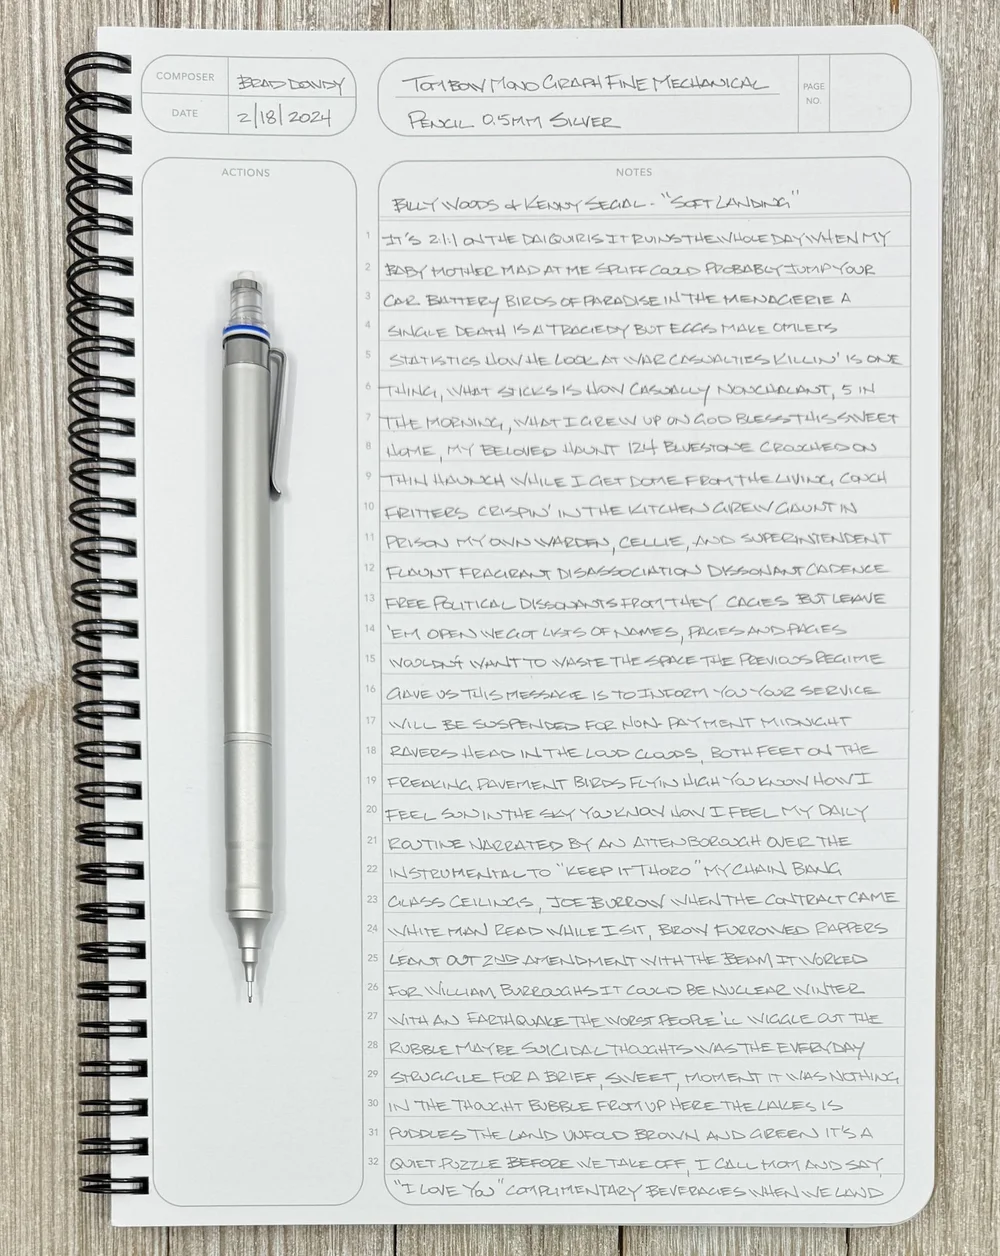 COMPOSER
BRAD DOWDY
DATE
2/18/2024
TOMBOW MONO GRAPH FINE MECHANICAL
PENCIL 0.5MM SILVER
PAGE
NO.
ACTIONS
NOTES
BILLY WOODS & KENNY SEGAL - "SOFT LANDING"
1 IT'S 2:1:1 ON THE DAIQUIRIS IT RUINS THE WHOLE DAY WHEN MY
2 BABY MOTHER MAD AT ME SPLIFF COULD PROBABLY JUMP YOUR
3 CAR BATTERY BIRDS OF PARADISE IN THE MENAGERIE A
4 SINGLE DEATH IS A TRAGEDY BUT EGGS MAKE OMLETS
5 STATISTICS HOW HE LOOK AT WAR CASUALTIES KILLIN' IS ONE
6 THING, WHAT STICKS IS HOW CASUALLY NONCHALANT, 5 IN
7 THE MORNING, WHAT I GREW UP ON GOD BLESS THIS SWEET
8 HOME, MY BELOVED HAUNT 124 BLUESTONE CROUCHED ON
9 THIN HAUNCH WHILE I GET DOME FROM THE LIVING, CONCH
10 FRITTERS CRISPIN' IN THE KITCHEN GREW GAUNT IN
11 PRISON MY OWN WARDEN, CELLIE, AND SUPERINTENDENT
12 FLAUNT FRAGRANT DISASSOCIATION DISSONANT CADENCE
13 FREE POLITICAL DISSONANTS FROM THEY CAGES BUT LEAVE
14 'EM OPEN WE GOT LISTS OF NAMES, PAGES AND PAGES
15 WOULDN'T WANT TO WASTE THE SPACE THE PREVIOUS REGIME
16 GAVE US THIS MESSAGE IS TO INFORM YOU YOUR SERVICE
17 WILL BE SUSPENDED FOR NON-PAYMENT MIDNIGHT
18 RAVERS HEAD IN THE LOUD CLOUDS, BOTH FEET ON THE
19 FREAKING PAVEMENT BIRDS FLYIN HIGH YOU KNOW HOW I
20 FEEL SUN IN THE SKY YOU KNOW HOW I FEEL MY DAILY
21 ROUTINE NARRATED BY AN ATTENBOROUGH OVER THE
22 INSTRUMENTAL TO "KEEP IT THORO" MY CHAIN BANG
23 GLASS CEILINGS, JOE BURROW WHEN THE CONTRACT CAME
24 WHITE MAN READ WHILE I SIT, BROW FURROWED RAPPERS
25 LEANT OUT 2ND AMENDMENT WITH THE BEAM IT WORKED
26 FOR WILLIAM BURROUGHS IT COULD BE NUCLEAR WINTER
27 WITH AN EARTHQUAKE THE WORST PEOPLE'LL WIGGLE OUT THE
28 RUBBLE MAYBE SUICIDAL THOUGHTS WAS THE EVERYDAY
29 STRUGGLE FOR A BRIEF, SWEET, MOMENT IT WAS NOTHING
30 IN THE THOUGHT BUBBLE FROM UP HERE THE LAKES IS
31 PUDDLES THE LAND UNFOLD BROWN AND GREEN IT'S A
32 QUIET PUZZLE BEFORE WE TAKE OFF, I CALL MOM AND SAY,
"I LOVE YOU" COMPLIMENTARY BEVERAGES WHEN WE LAND